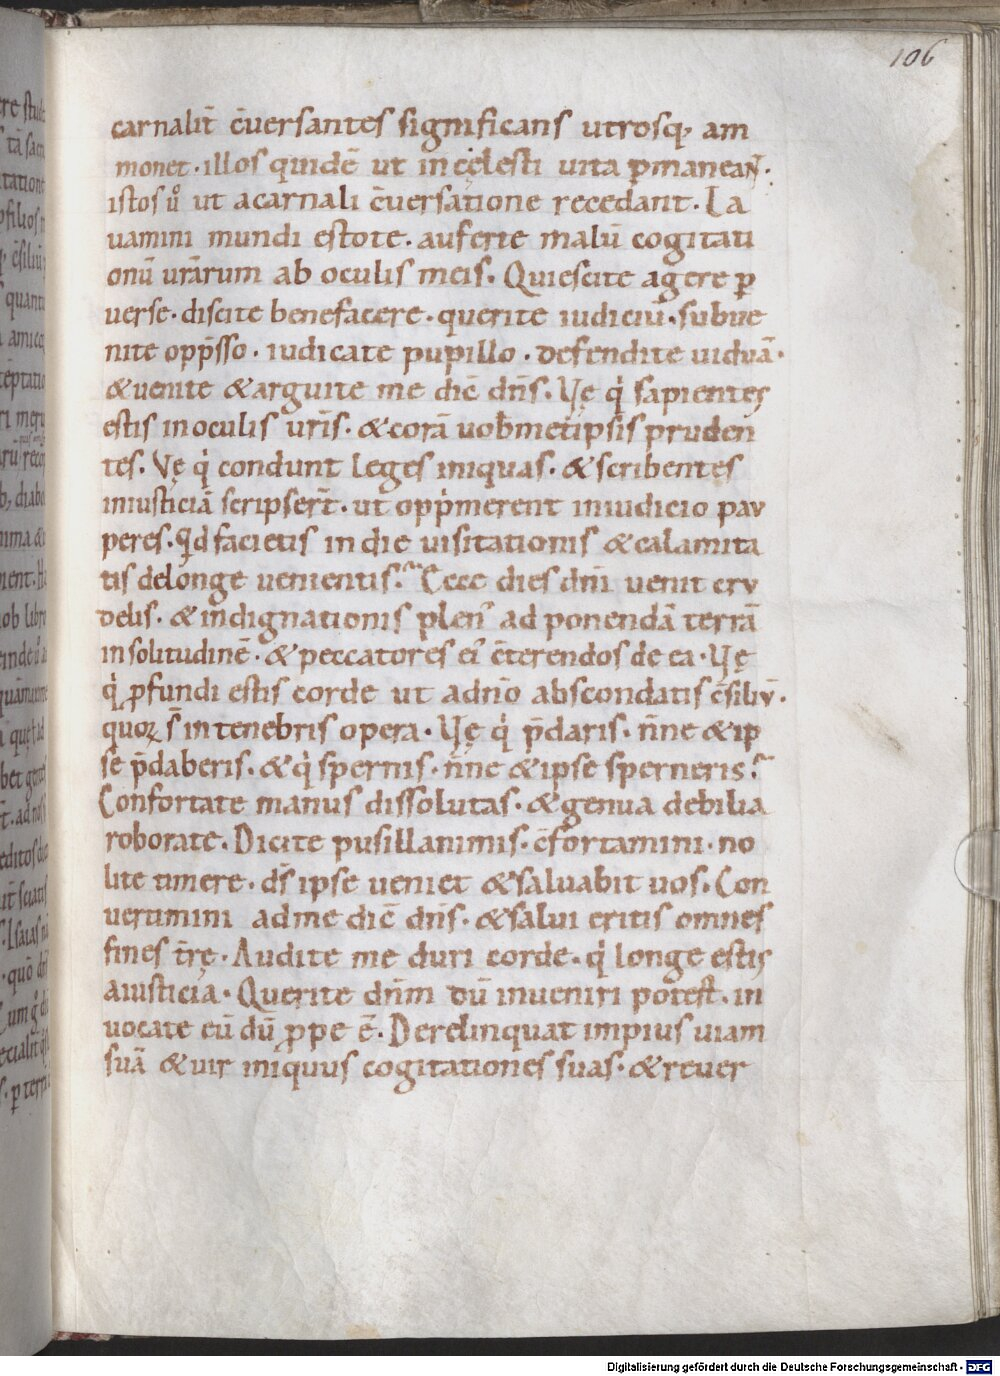 106
carnalit̄ c̄uersantes significans utrosq; am
monet. illos quidē ut in cęlesti uita ꝑmaneant.
istos ů ut a carnali c̄uersatione recedant. La
uamini mundi estote. auferte malū cogitati
onū urārum ab oculis meis. Quiescite agere ꝑ
uerse. discite benefacere. querite iudiciū. subue
nite opp̄sso. iudicate pupillo. defendite uiduā.
& uenite & arguite me dic̄ dn̄s. Vę q̇ sapientes
estis in oculis ur̄is. & corā uob̄metipsis pruden
tes. Vę q̇ condunt leges iniquas. & scribentes
iniusticiā scripser̄t. ut opp̄merent in iudicio pau
peres. Qd facietis in die uisitationis & calamita
tis de longe uenientis? Ecce dies dn̄i uenit cru
delis. & indignationis plen᾽ ad ponendā terrā
in solitudinē. & peccatores ei᾽ c̄terendos de ea. Vę
q̇ ꝓfundi estis corde ut a dn̄o abscondatis c̄siliū.
quoꝝ s̄ in tenebris opera. Vę q̇ p̄daris. n̄ne & ip
se p̄daberis. & q̇ spernis. n̄ne & ipse sperneris?
Confortate manus dissolutas. & genua debilia
roborate. Dicite pusillanimis. c̄fortamini. no
lite timere. ds̄ ipse ueniet & saluabit uos. Con
uertimini ad me dic̄ dn̄s. & salui eritis omnes
fines tr̄ę. Audite me duri corde. q̇ longe estis
a iusticia. Querite dn̄m dū inueniri potest. in
uocate eū dū ꝓpe ē. Derelinquat impius uiam
suā & uir iniquus cogitationes suas. & reuer
Digitalisierung gefördert durch die Deutsche Forschungsgemeinschaft - DFG